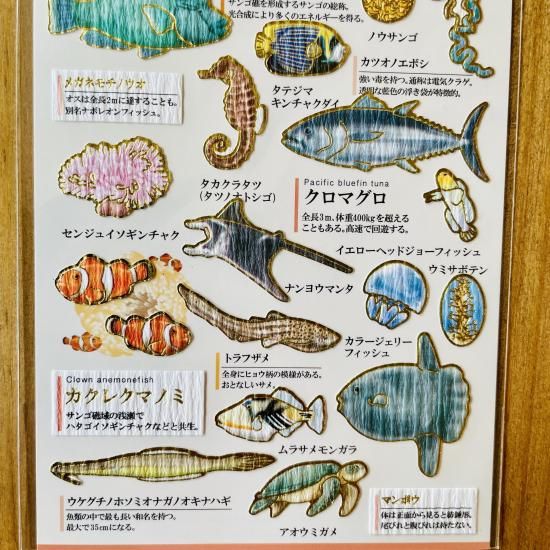 サンゴ礁を形成するサンゴの総称。
光合成により多くのエネルギーを得る。
ノウサンゴ
カツオノエボシ
強い毒を持つ。通称は電気クラゲ。
透明な藍色の浮き袋が特徴的。
メガネモチノウオ
オスは全長2mに達することも。
別名ナポレオンフィッシュ。
タテジマ
キンチャクダイ
タカクラタツ
(タツノオトシゴ)
Pacific bluefin tuna
クロマグロ
全長3m、体重400kgを超える
こともある。高速で回遊する。
センジュイソギンチャク
イエローヘッドジョーフィッシュ
ナンヨウマンタ
ウミサボテン
カラージェリー
フィッシュ
トラフザメ
全身にヒョウ柄の模様がある。
おとなしいサメ。
Clown anemonefish
カクレクマノミ
サンゴ礁域の浅瀬で
ハタゴイソギンチャクなどと共生。
ムラサメモンガラ
ウケグチノホソミオナガノオキナハギ
魚類の中で最も長い和名を持つ。
最大で35cmになる。
アオウミガメ
マンボウ
体は正面から見ると紡錘形。
尾びれと腹びれは持たない。